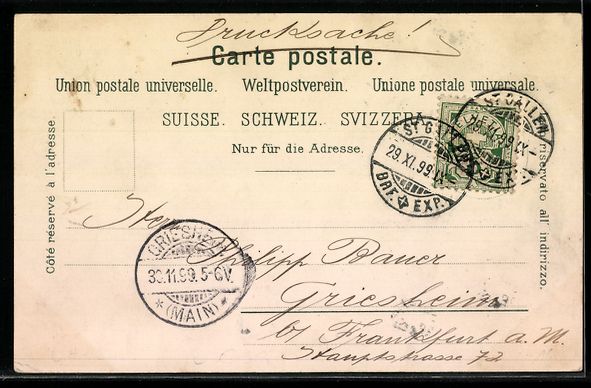 Drucksache!
Carte postale.
Union postale universelle. Weltpostverein. Unione postale universale.
SUISSE. SCHWEIZ. SVIZZERA.
Nur für die Adresse.
Côté réservé à l'adresse.
riservato all' indirizzo.
ST GALLEN
29.XI.99.IX
BRF. EXP.
ST GALLEN
99.IX
EXP.
GRIESHEIM
30.11.99.5-6V.
* (MAIN) *
Philipp Bauer
Griesheim
b/ Frankfurt a. M.
Hauptstrasse 72